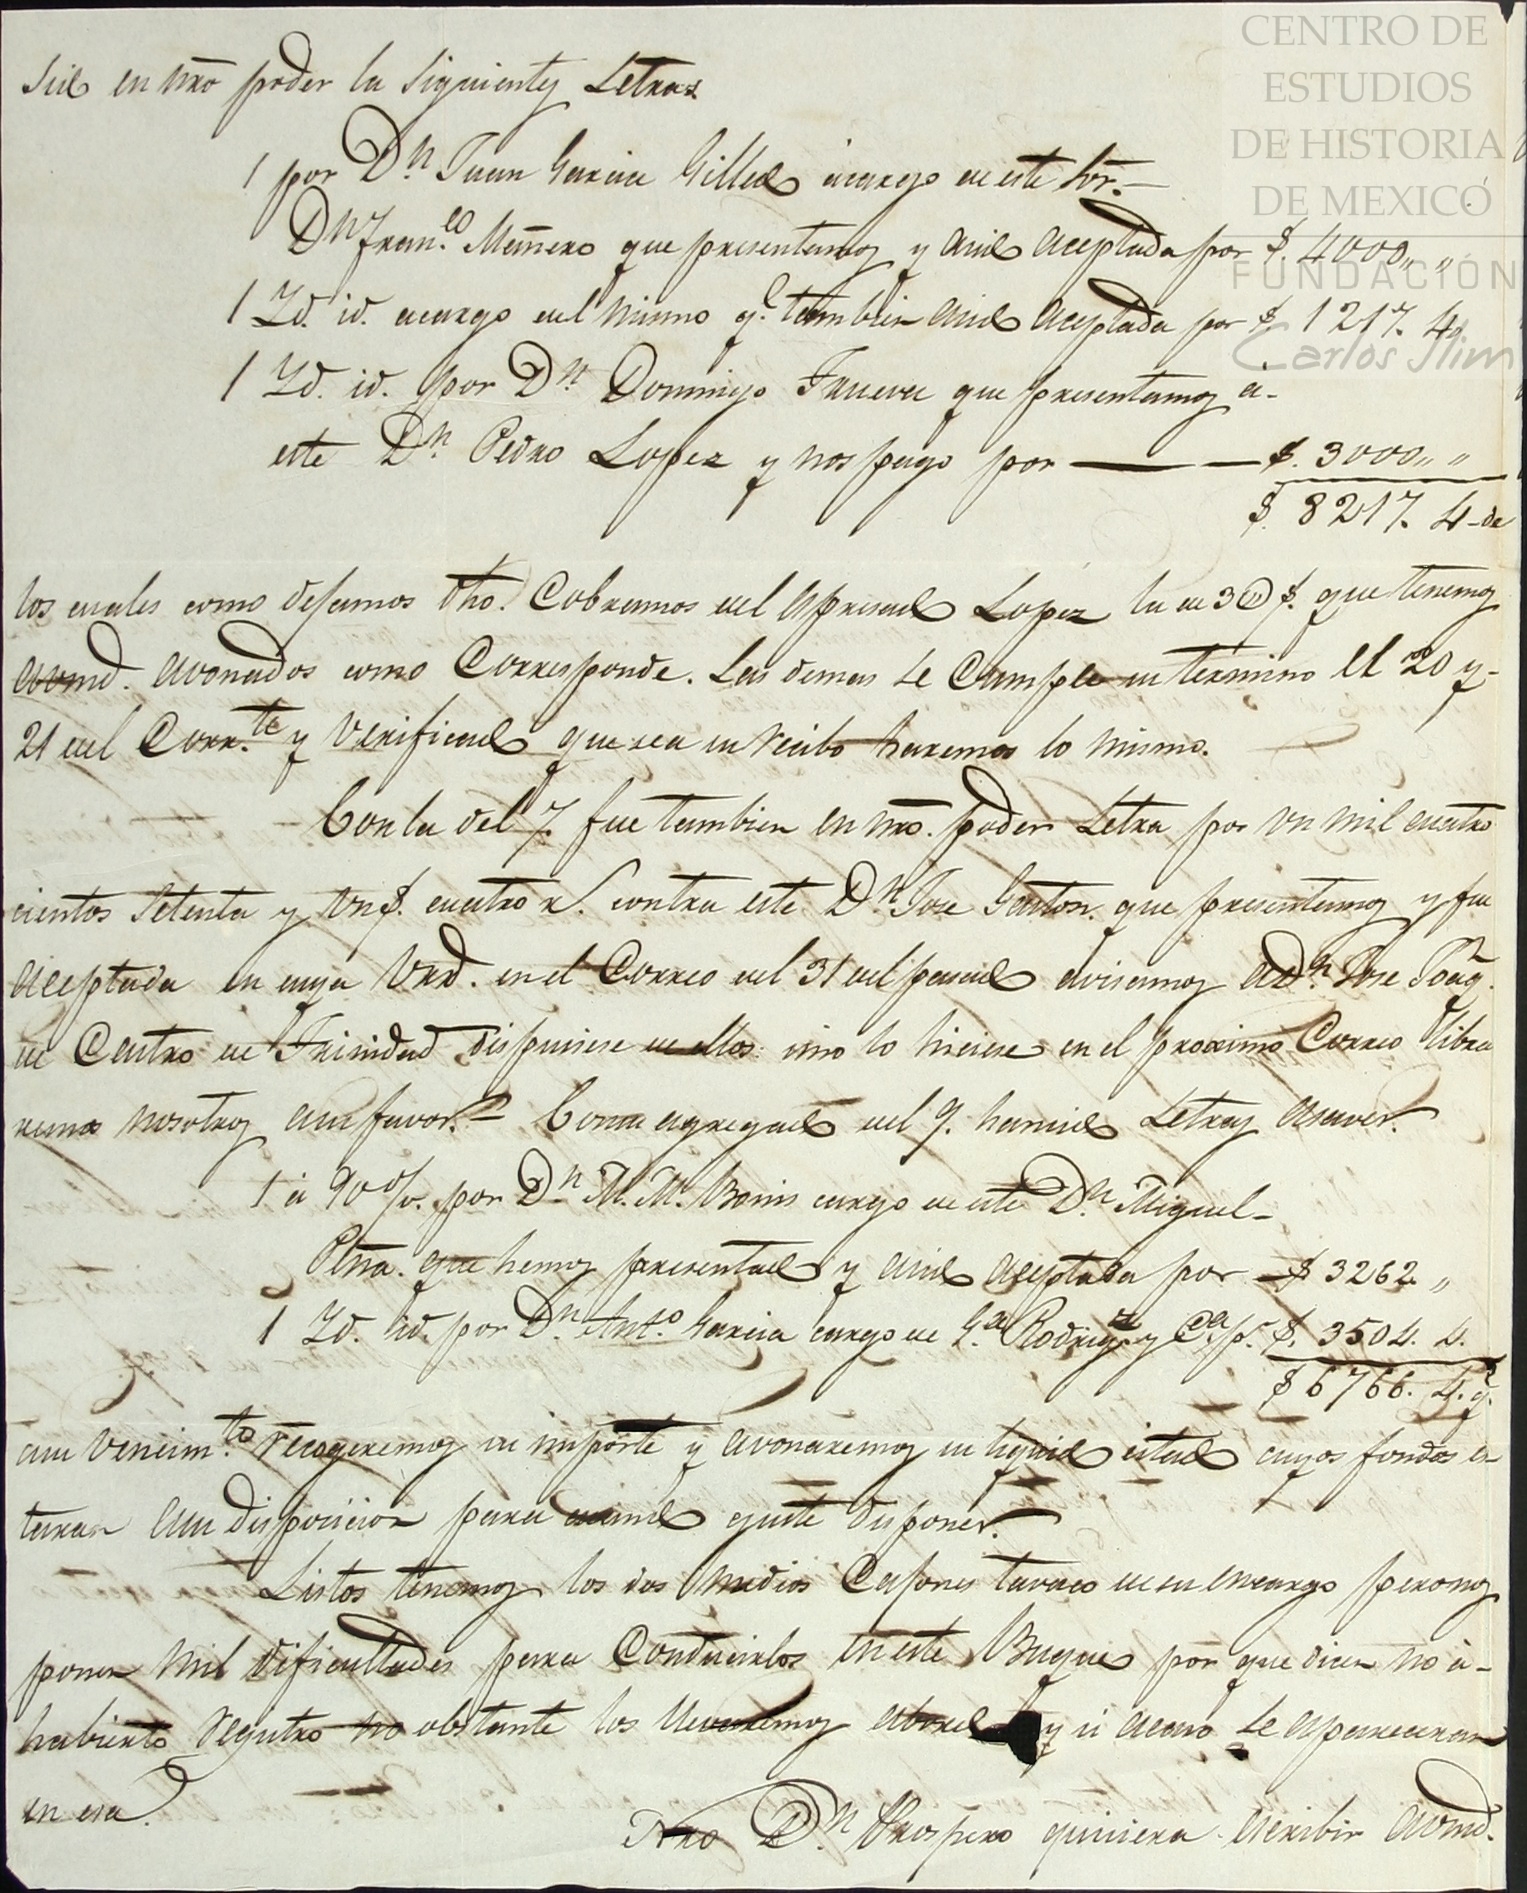 CENTRO DE
ESTUDIOS
DE HISTORIA
DE MEXICO
FUNDACIÓN
Carlos Slim
sido en nro poder la siguientes Letras
1 por Dn. Juan Garcia acargo de este Sor.
Dn Franco. Mañero que presentamos y a sido aceptada por $. 4000,, ,,
1 Yd. id. acargo del mismo q.e tambien a sido aceptada por $ 1217. 4
1 Yd. id. por Dn. Domingo Trueva que presentamos á
este Dn. Pedro Lopez y nos pago por $. 3000,, ,,
$. 8217. 4 de
los cuales como dejamos dho. Cobramos del Lopez la de 3 $. que tenemos
avmd. avonados como Corresponde. Las demas se Cumple su término el 20 y
21 del Corr.te y verificado que sea su recibo haremos lo mismo.
Con la del 7. fue tambien en nro. poder Letra por un mil cuatro
cientos setenta y un $. cuatro r.s contra este Dn. Jose Gaston. que presentamos y fue
aceptada en cuya Vrd. en el Correo del 31 del pasado avisamos a Dn. Jose Joaq.n
de Castro de Trinidad dispusiese de ellos: sino lo hiciese en el proximo Correo libra
remos nosotros asu favor. Con su agregado del 9. han sido Letras asaver.
1 á 90 d/v. por Dn. M. M. cargo de este Dn. Miguel
Peña. que hemos presentado y a sido aceptada por $ 3262. ,,
1 Yd. id. por Dn. Anto. Garcia cargo de Ga. Rodrigz. y Ca. p.r $. 3504. 4.
$ 6766. 4. q.e
asu vencim.to recogeremos su importe y avonaremos su liquido estado cuyos fondos es
taran asu disposicion para cuando guste disponer.
Listos tenemos los dos medios Cajones tavaco de su encargo pero nos
ponen mil dificultades para Conducirlos en este Buque por que dicen no á
habierto registro no obstante los llevaremos abordo y si acaso se apareceran
en esa.
Nro Dn. Prospero quisiera escribir avmd.